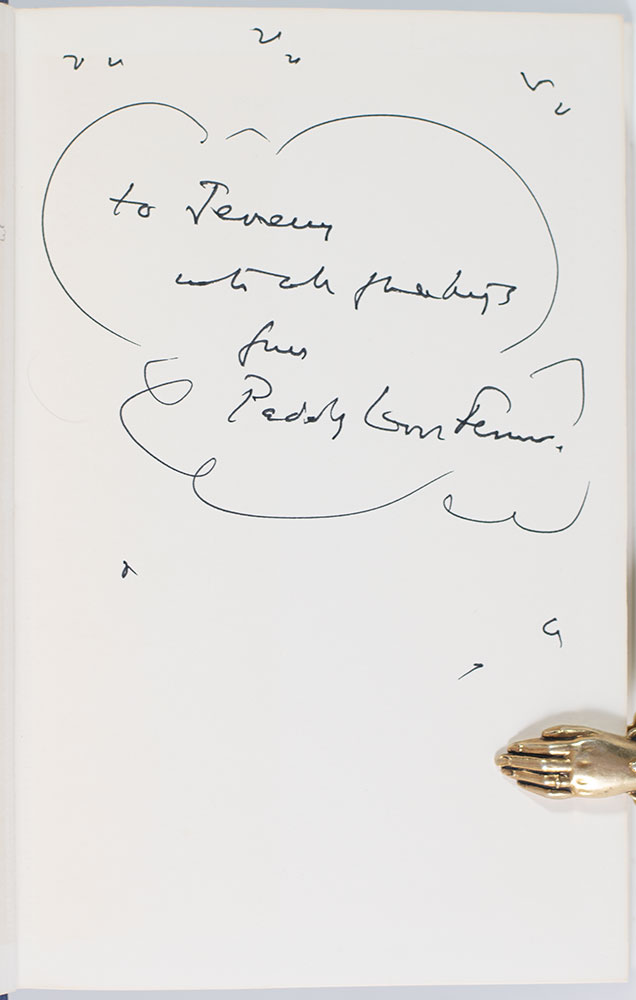 to Jeremy
with all greetings
from
Paddy Leigh Fermor.